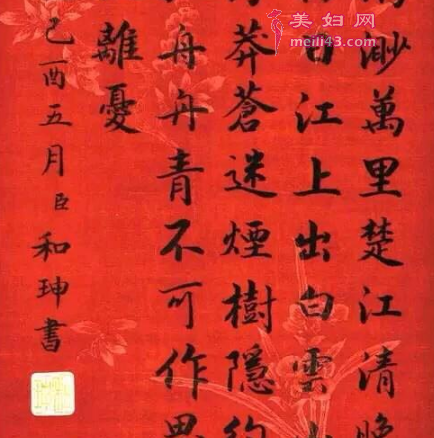 美妇网
meili43.com
渺萬里楚江清晚
江上出白雲
莽蒼迷煙樹隱約
舟舟青不可作思
離憂
己酉五月臣和珅書